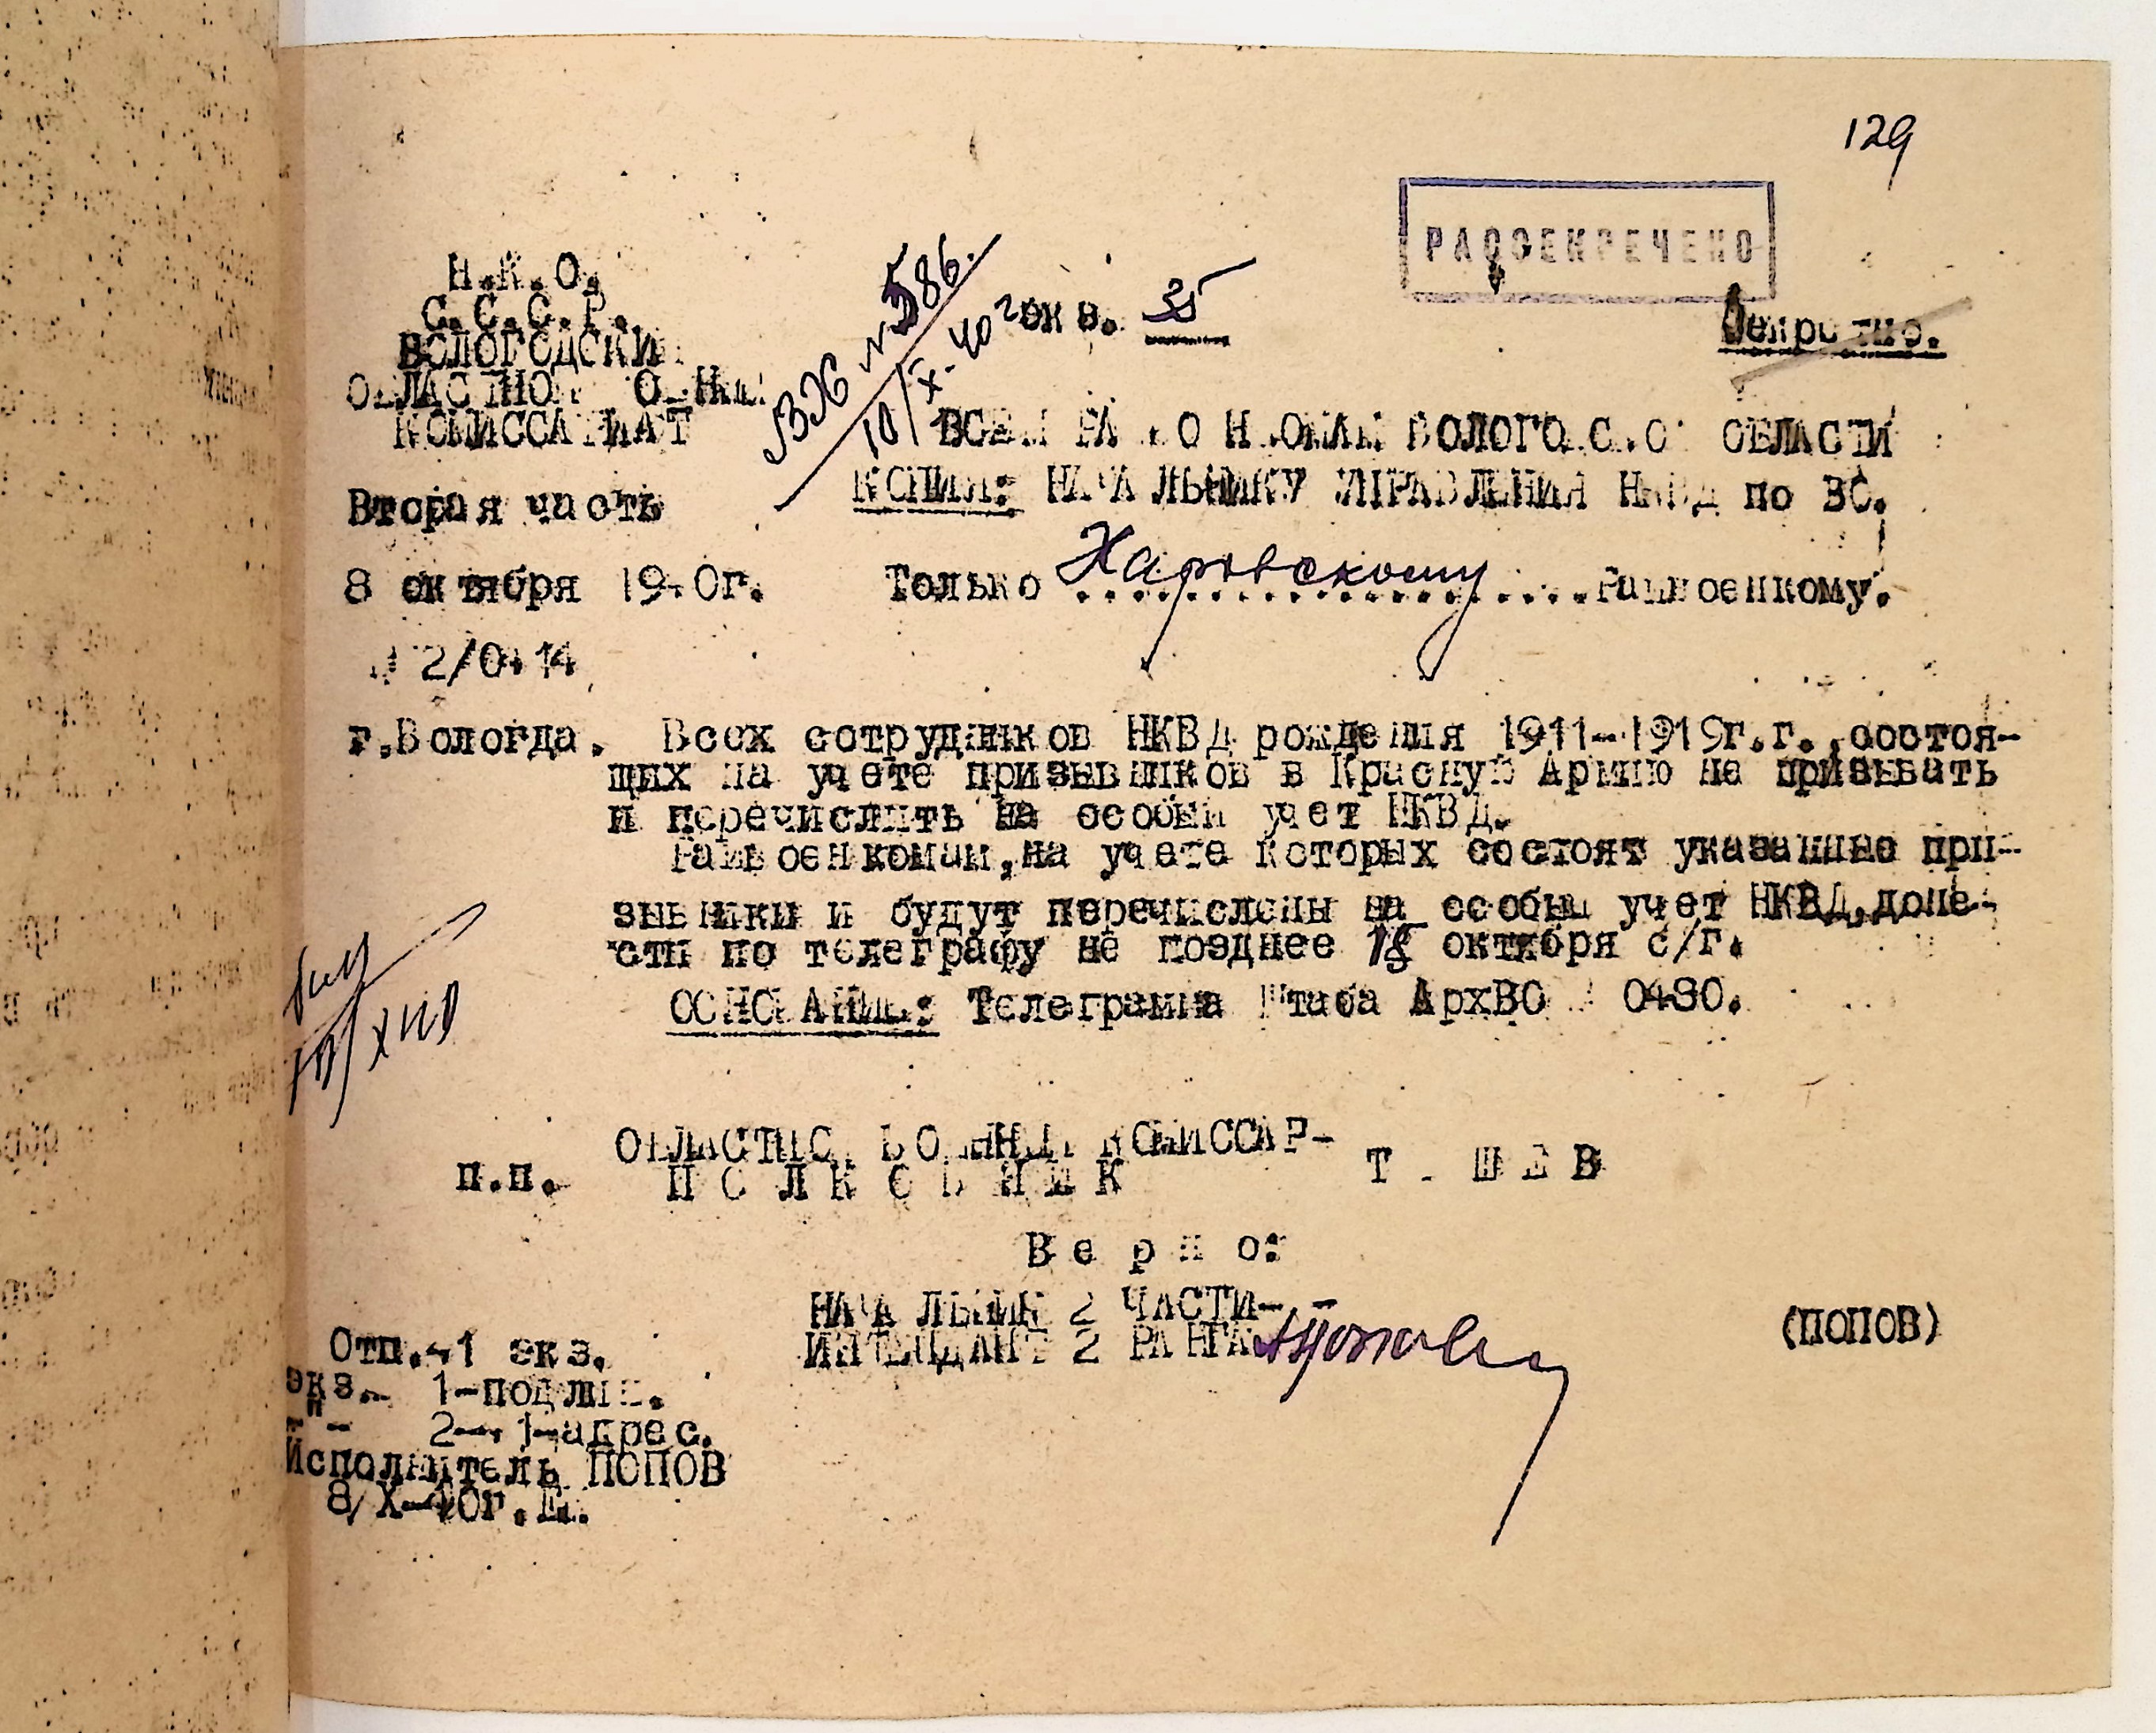 129
РАССЕКРЕЧЕНО
Н.К.О.
С.С.С.Р.
ВОЛОГОДСКИЙ
ОБЛАСТНОЙ ВОЕННЫЙ
КОМИССАРИАТ
Вх №586.
10/X-40г
экз. 35
Секретно.
ВСЕМ РАЙВОЕНКОМАМ ВОЛОГОДСКОЙ ОБЛАСТИ
КОПИЯ: НАЧАЛЬНИКУ УПРАВЛЕНИЯ НКВД по ВО.
Вторая часть
8 октября 1940г.
Только Харовскому Райвоенкому.
г.Вологда. Всех сотрудников НКВД рождения 1911-1919г.г.,состоя-
щих на учете призывников в Красную Армию не призывать
и перечислить на особый учет НКВД.
Райвоенкомам,на учете которых состоят указанные при-
зывники и будут перечислены на особый учет НКВД,доне-
сти по телеграфу не позднее 18 октября с/г.
ОСНОВАНИЕ: Телеграмма Штаба АрхВО 0430.
ОБЛАСТНОЙ ВОЕННЫЙ КОМИССАР-
п.п. ПОЛКОВНИК
Верно:
НАЧАЛЬНИК 2 ЧАСТИ-
ИНТЕНДАНТ 2 РАНГА (ПОПОВ)
Отп.41 экз.
экз. 1-подлин.
-"- 2-41-адрес.
Исполнитель ПОПОВ
8/X-40г.